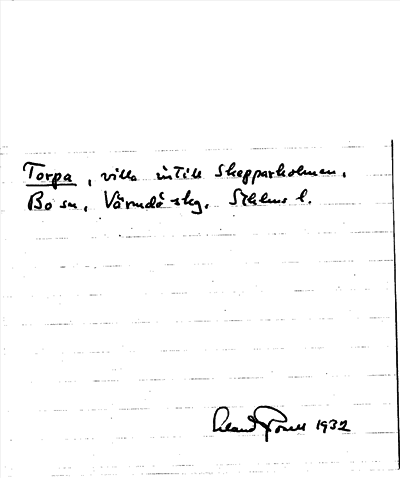 Torpa, villa intill Skepparholmen,
Bo sn, Värmdö skg, Sthlms l.
1932